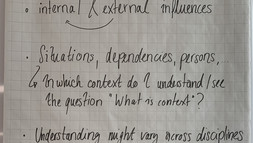 • internal & external influences
• Situations, dependencies, persons,
↳ In which context do I understand/see
the question "What is context"?
• Understanding might vary across disciplines